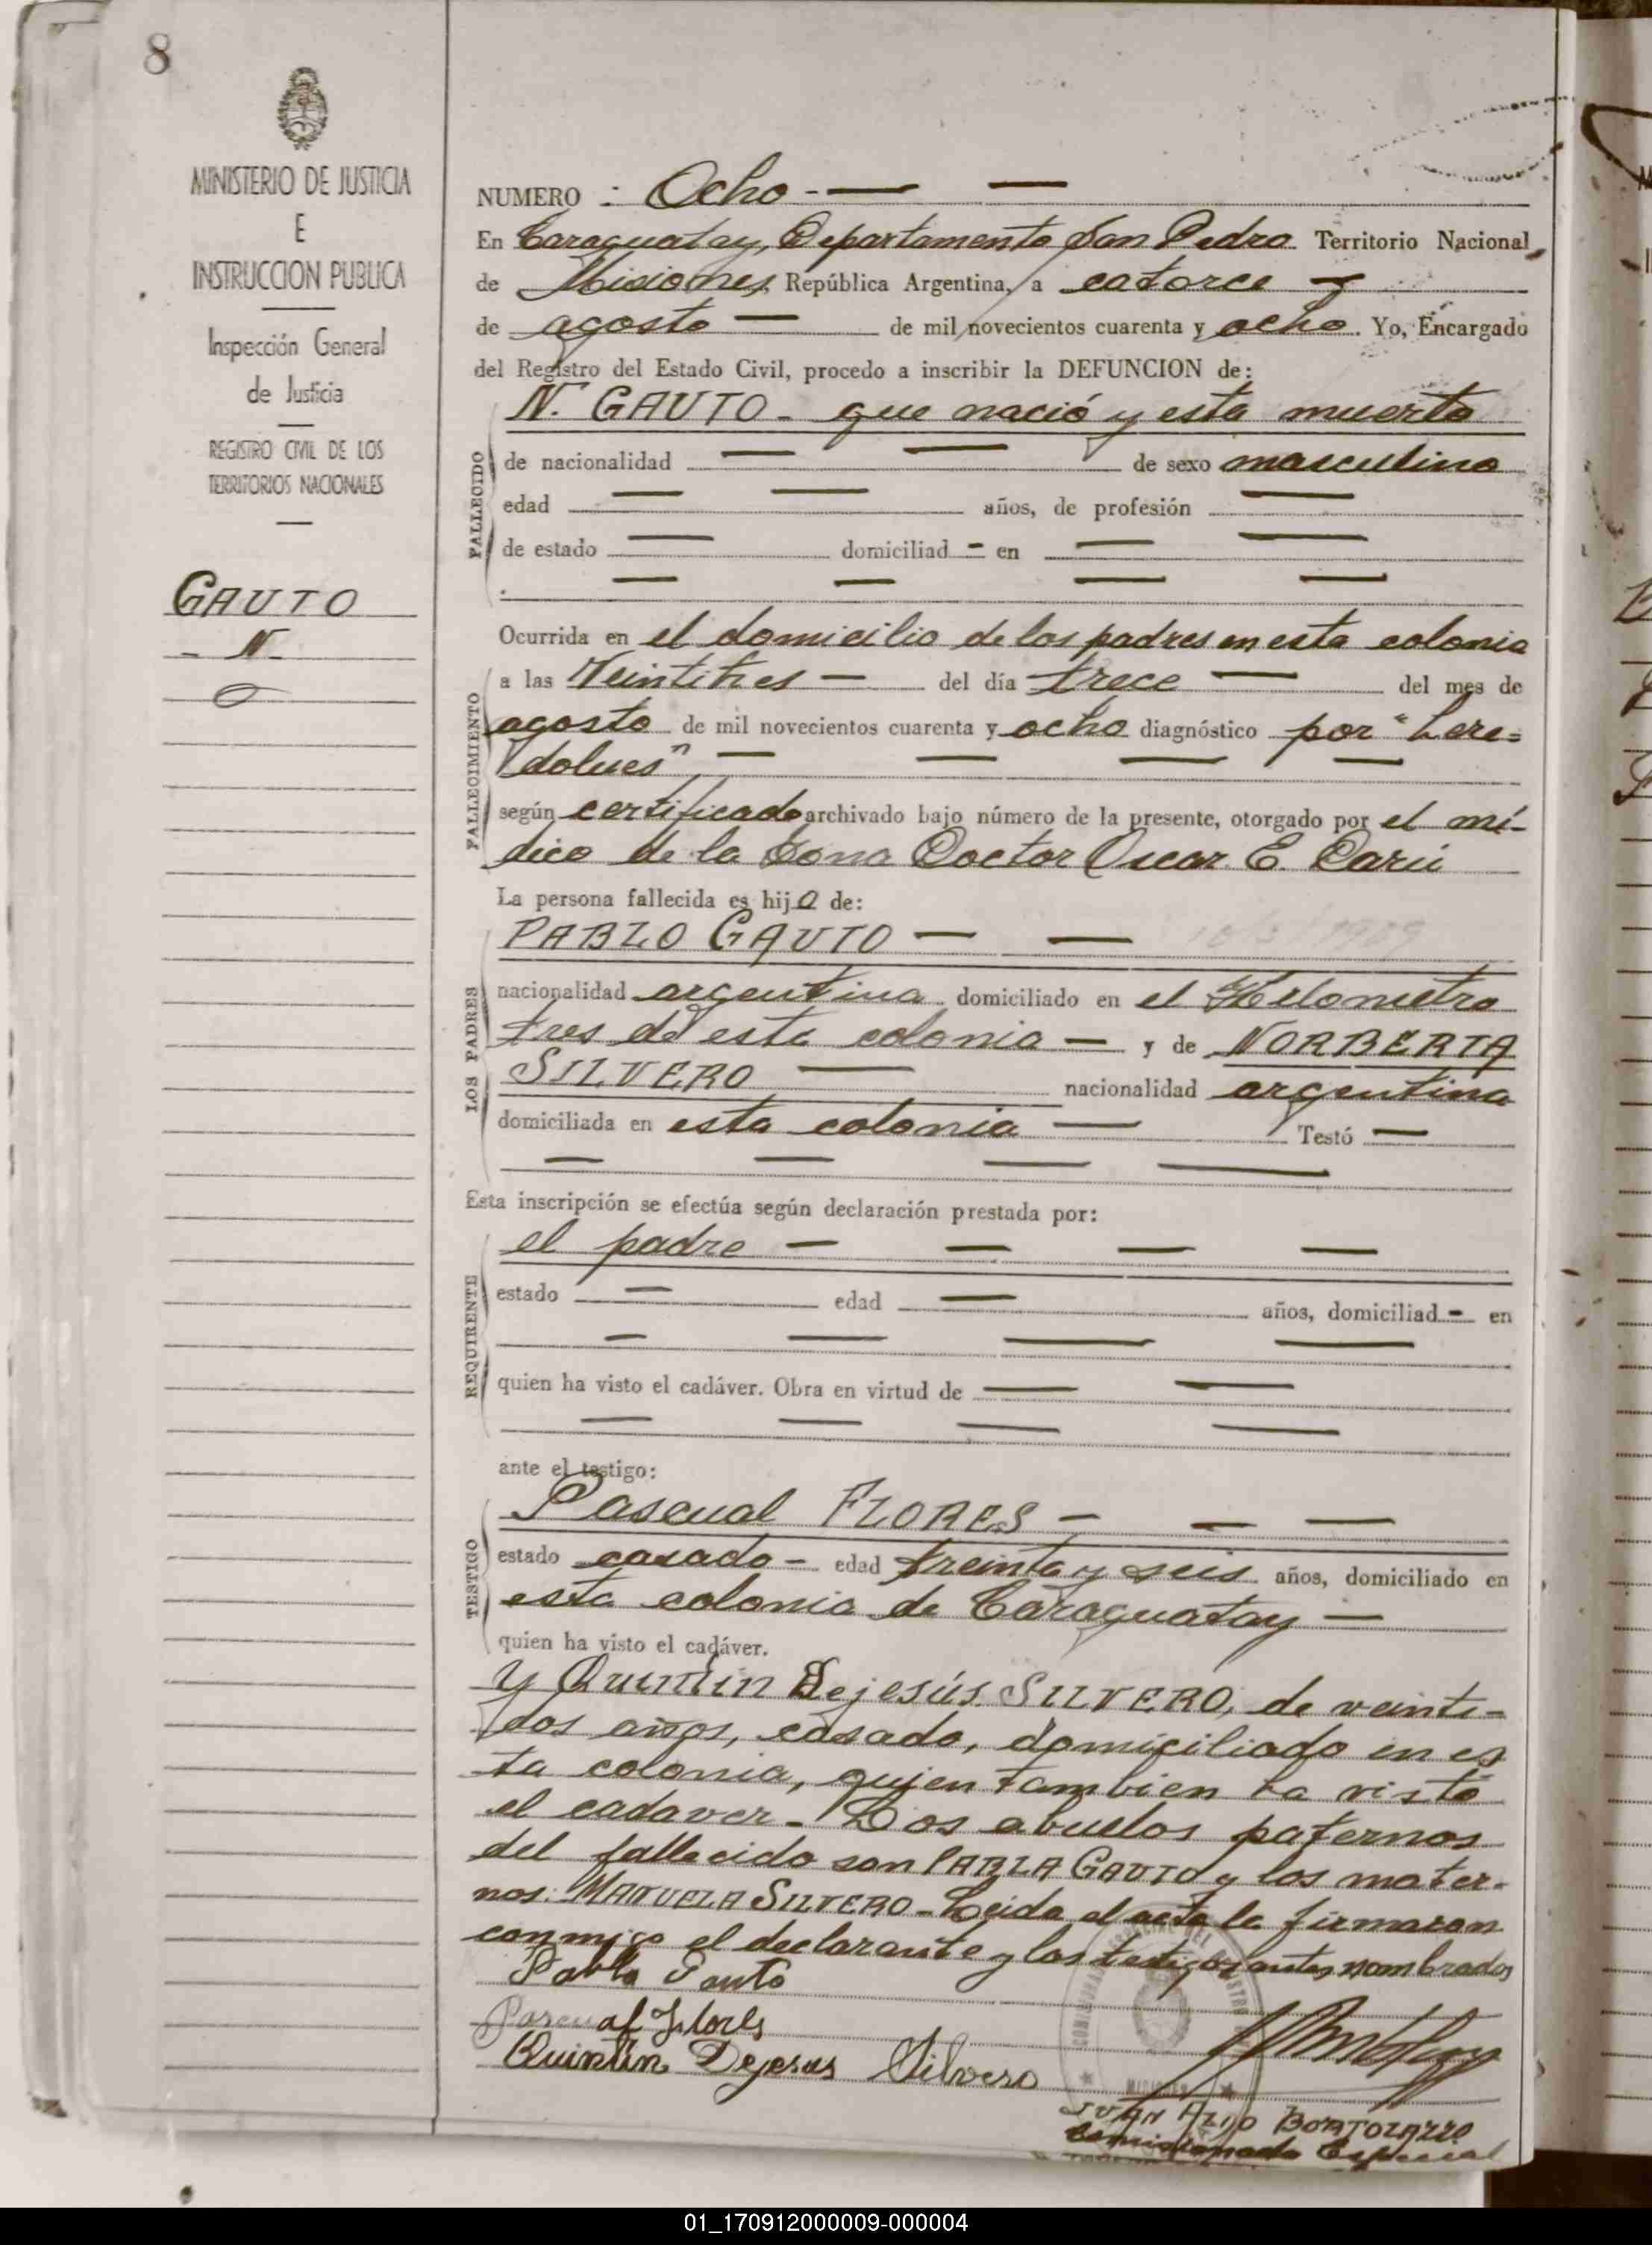 8
MINISTERIO DE JUSTICIA
E
INSTRUCCION PUBLICA
Inspección General
de Justicia
REGISTRO CIVIL DE LOS
TERRITORIOS NACIONALES
GAUTO
- N -
NUMERO : Ocho - — —
En Caraguatay, Departamento San Pedro Territorio Nacional,
de Misiones, República Argentina, a catorce —
de agosto — de mil novecientos cuarenta y ocho. Yo, Encargado
del Registro del Estado Civil, procedo a inscribir la DEFUNCION de:
PALLECIDO
N. GAUTO - que nació y esta muerto
de nacionalidad — — de sexo masculino
edad — — años, de profesión —
de estado — domiciliad - en — —
— — — —
Ocurrida en el domicilio de los padres en esta colonia
FALLECIMIENTO
a las Veintitres — del día trece — del mes de
agosto de mil novecientos cuarenta y ocho diagnóstico por "here=
dolues" — — — —
según certificado archivado bajo número de la presente, otorgado por el mé-
dico de la Zona Doctor Oscar E. Darú
La persona fallecida es hijo de:
LOS PADRES
PABLO GAUTO — —
nacionalidad argentina domiciliado en el Kilometro
tres de esta colonia — y de NORBERTA
SILVERO — nacionalidad argentina
domiciliada en esta colonia — Testó —
— — — —
Esta inscripción se efectúa según declaración prestada por:
REQUIRENTE
el padre — — — —
estado — edad — años, domiciliad - en
— — — —
quien ha visto el cadáver. Obra en virtud de — —
— — — —
ante el testigo:
TESTIGO
Pascual FLORES — — —
estado casado - edad treinta y seis años, domiciliado en
esta colonia de Caraguatay —
quien ha visto el cadáver.
Y Quintin Dejesús SILVERO, de veinti-
dos años, casado, domiciliado en es
ta colonia, quien tambien ha visto
el cadaver - Los abuelos paternos
del fallecido son PABLA GAUTO y los mater-
nos: MANUELA SILVERO - Leida el acta la firmaron
conmigo el declarante y los testigos antes nombrados
Pablo Gauto
Pascual Flores
Quintin Dejesus Silvero
MISIONES
JUAN ALIO BORTOLAZZO
Comisionado Especial
01_170912000009-000004